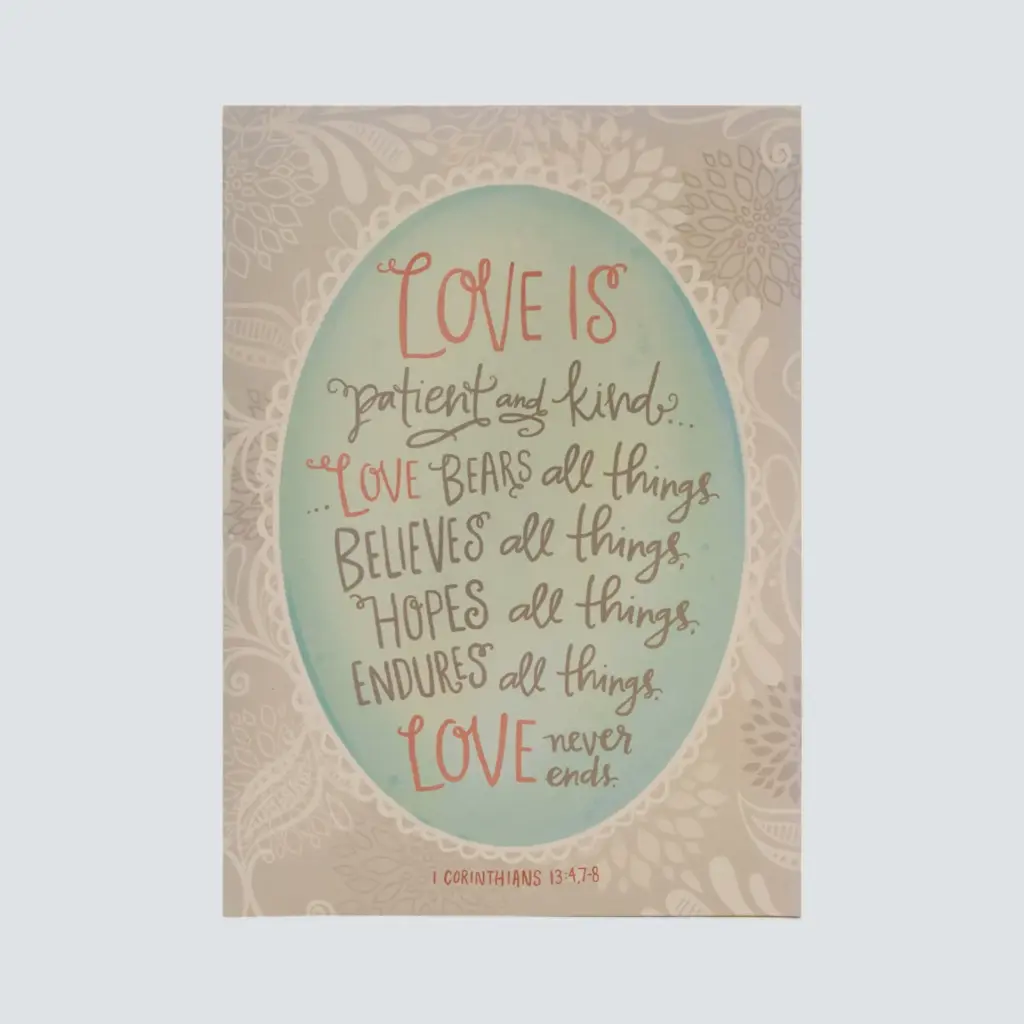 LOVE IS
patient and kind...
...LOVE BEARS all things
BELIEVES all things,
HOPES all things,
ENDURES all things.
LOVE never
ends.
1 CORINTHIANS 13:4,7-8